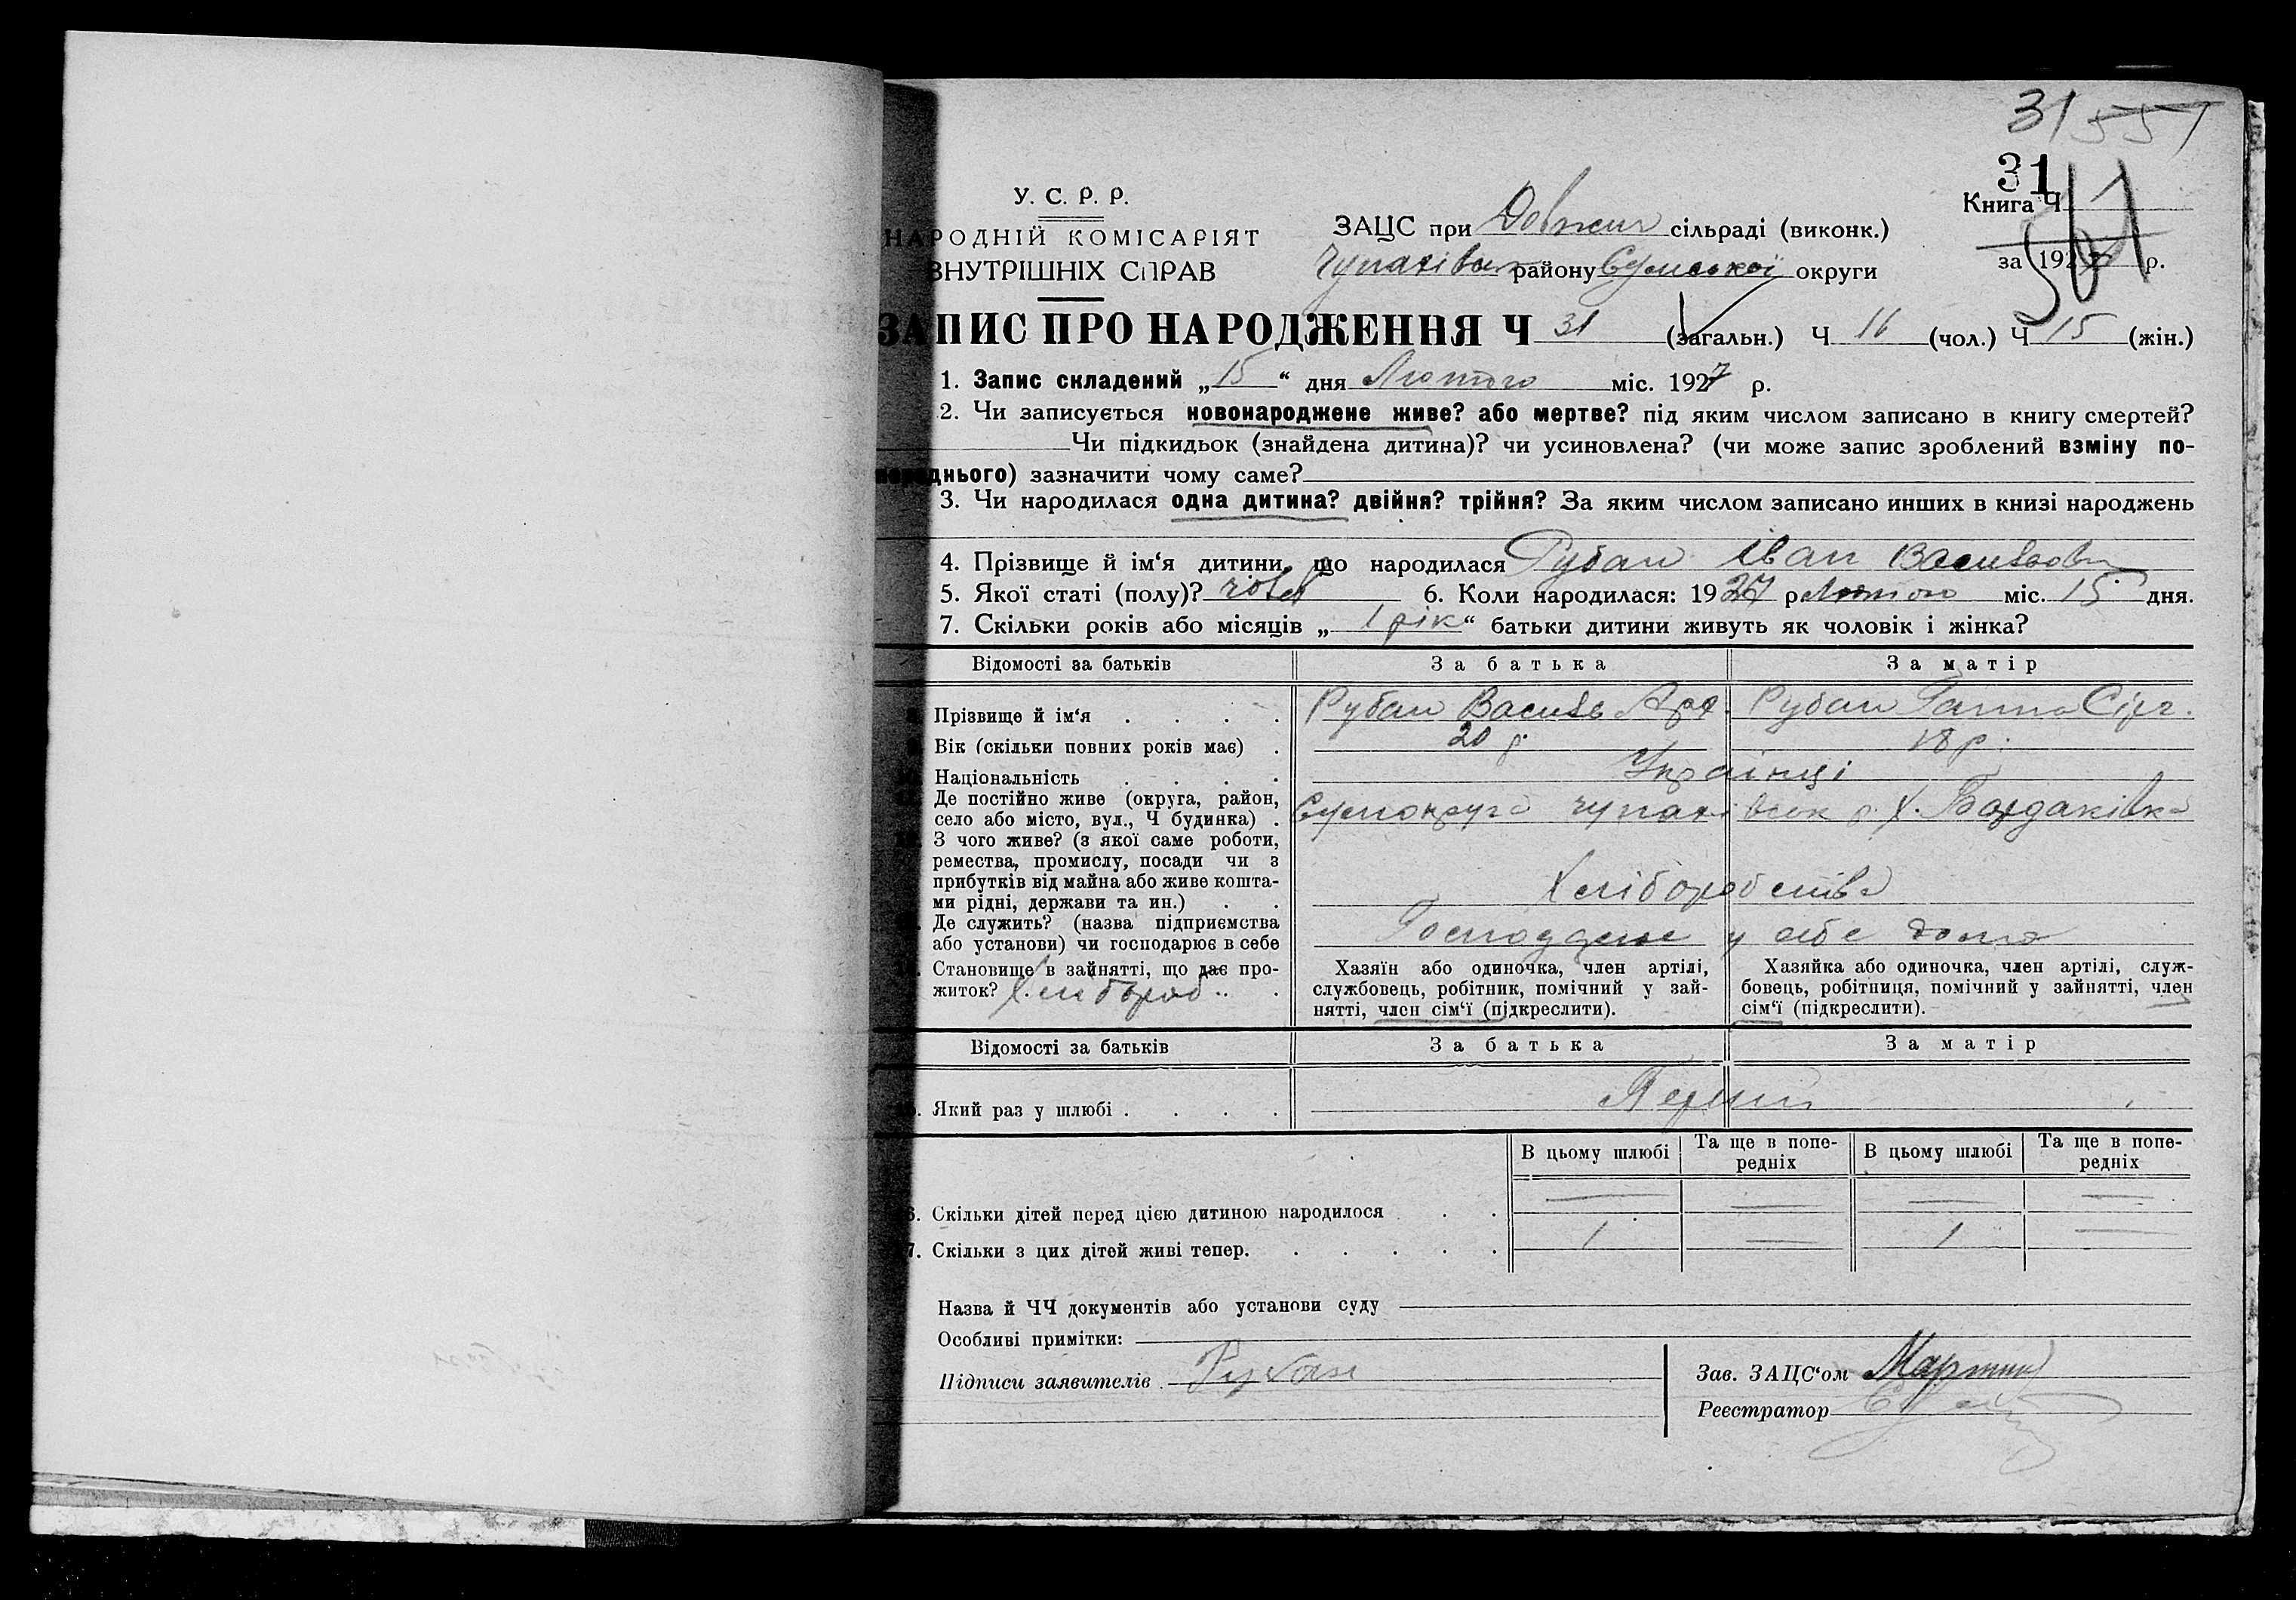 31 551
31
Книга Ч
561
за 1927 р.
У. С. Р. Р.
НАРОДНІЙ КОМІСАРІЯТ
ВНУТРІШНІХ СПРАВ
ЗАЦС при Довжик сільраді (виконк.)
Чупахівськ району Сумської округи
ЗАПИС ПРО НАРОДЖЕННЯ Ч 31 (загальн.) Ч 16 (чол.) Ч 15 (жін.)
1. Запис складений „ 15 “ дня Лютого міс. 1927 р.
2. Чи записується новонароджене живе? або мертве? під яким числом записано в книгу смертей?
Чи підкидьок (знайдена дитина)? чи усиновлена? (чи може запис зроблений взміну по-
переднього) зазначити чому саме?
3. Чи народилася одна дитина? двійня? трійня? За яким числом записано инших в книзі народжень
4. Прізвище й ім‘я дитини, що народилася Рубан Іван Васильович
5. Якої статі (полу)? чолов 6. Коли народилася: 1927 р. Лютого міс. 15 дня.
7. Скільки років або місяців „ 1 рік “ батьки дитини живуть як чоловік і жінка?
Відомості за батьків За батька За матір
Прізвище й ім‘я . . . . Рубан Василь Арх. Рубан Ганна Сірг.
Вік (скільки повних років має) . 20 р. 18 р.
Національність . . . . Українці
Де постійно живе (округа, район,
село або місто, вул., Ч будинка) . Сумокруга Чупахівськ р. х. Бардаківка
З чого живе? (з якої саме роботи,
ремества, промислу, посади чи з
прибутків від майна або живе кошта-
ми рідні, держави та ин.) . . Хліборобства
Де служить? (назва підприємства
або установи) чи господарює в себе у себе дома
Становище в зайнятті, що дає про-
житок? Хлібороб . .
Хазяїн або одиночка, член артілі,
службовець, робітник, помічний у зай-
нятті, член сім‘ї (підкреслити).
Хазяйка або одиночка, член артілі, служ-
бовець, робітниця, помічний у зайнятті, член
сім‘ї (підкреслити).
Відомості за батьків За батька За матір
Який раз у шлюбі . . . . Перший
В цьому шлюбі Та ще в попе-
редніх В цьому шлюбі Та ще в попе-
редніх
6. Скільки дітей перед цією дитиною народилося . . — — — —
7. Скільки з цих дітей живі тепер. . . . . . 1 — 1 —
Назва й ЧЧ документів або установи суду
Особливі примітки:
Підписи заявителів . Рубан
Зав. ЗАЦС‘ом
Реєстратор